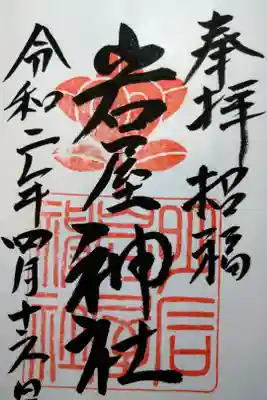 奉拝 招福
岩屋神社
令和二年四月十六日